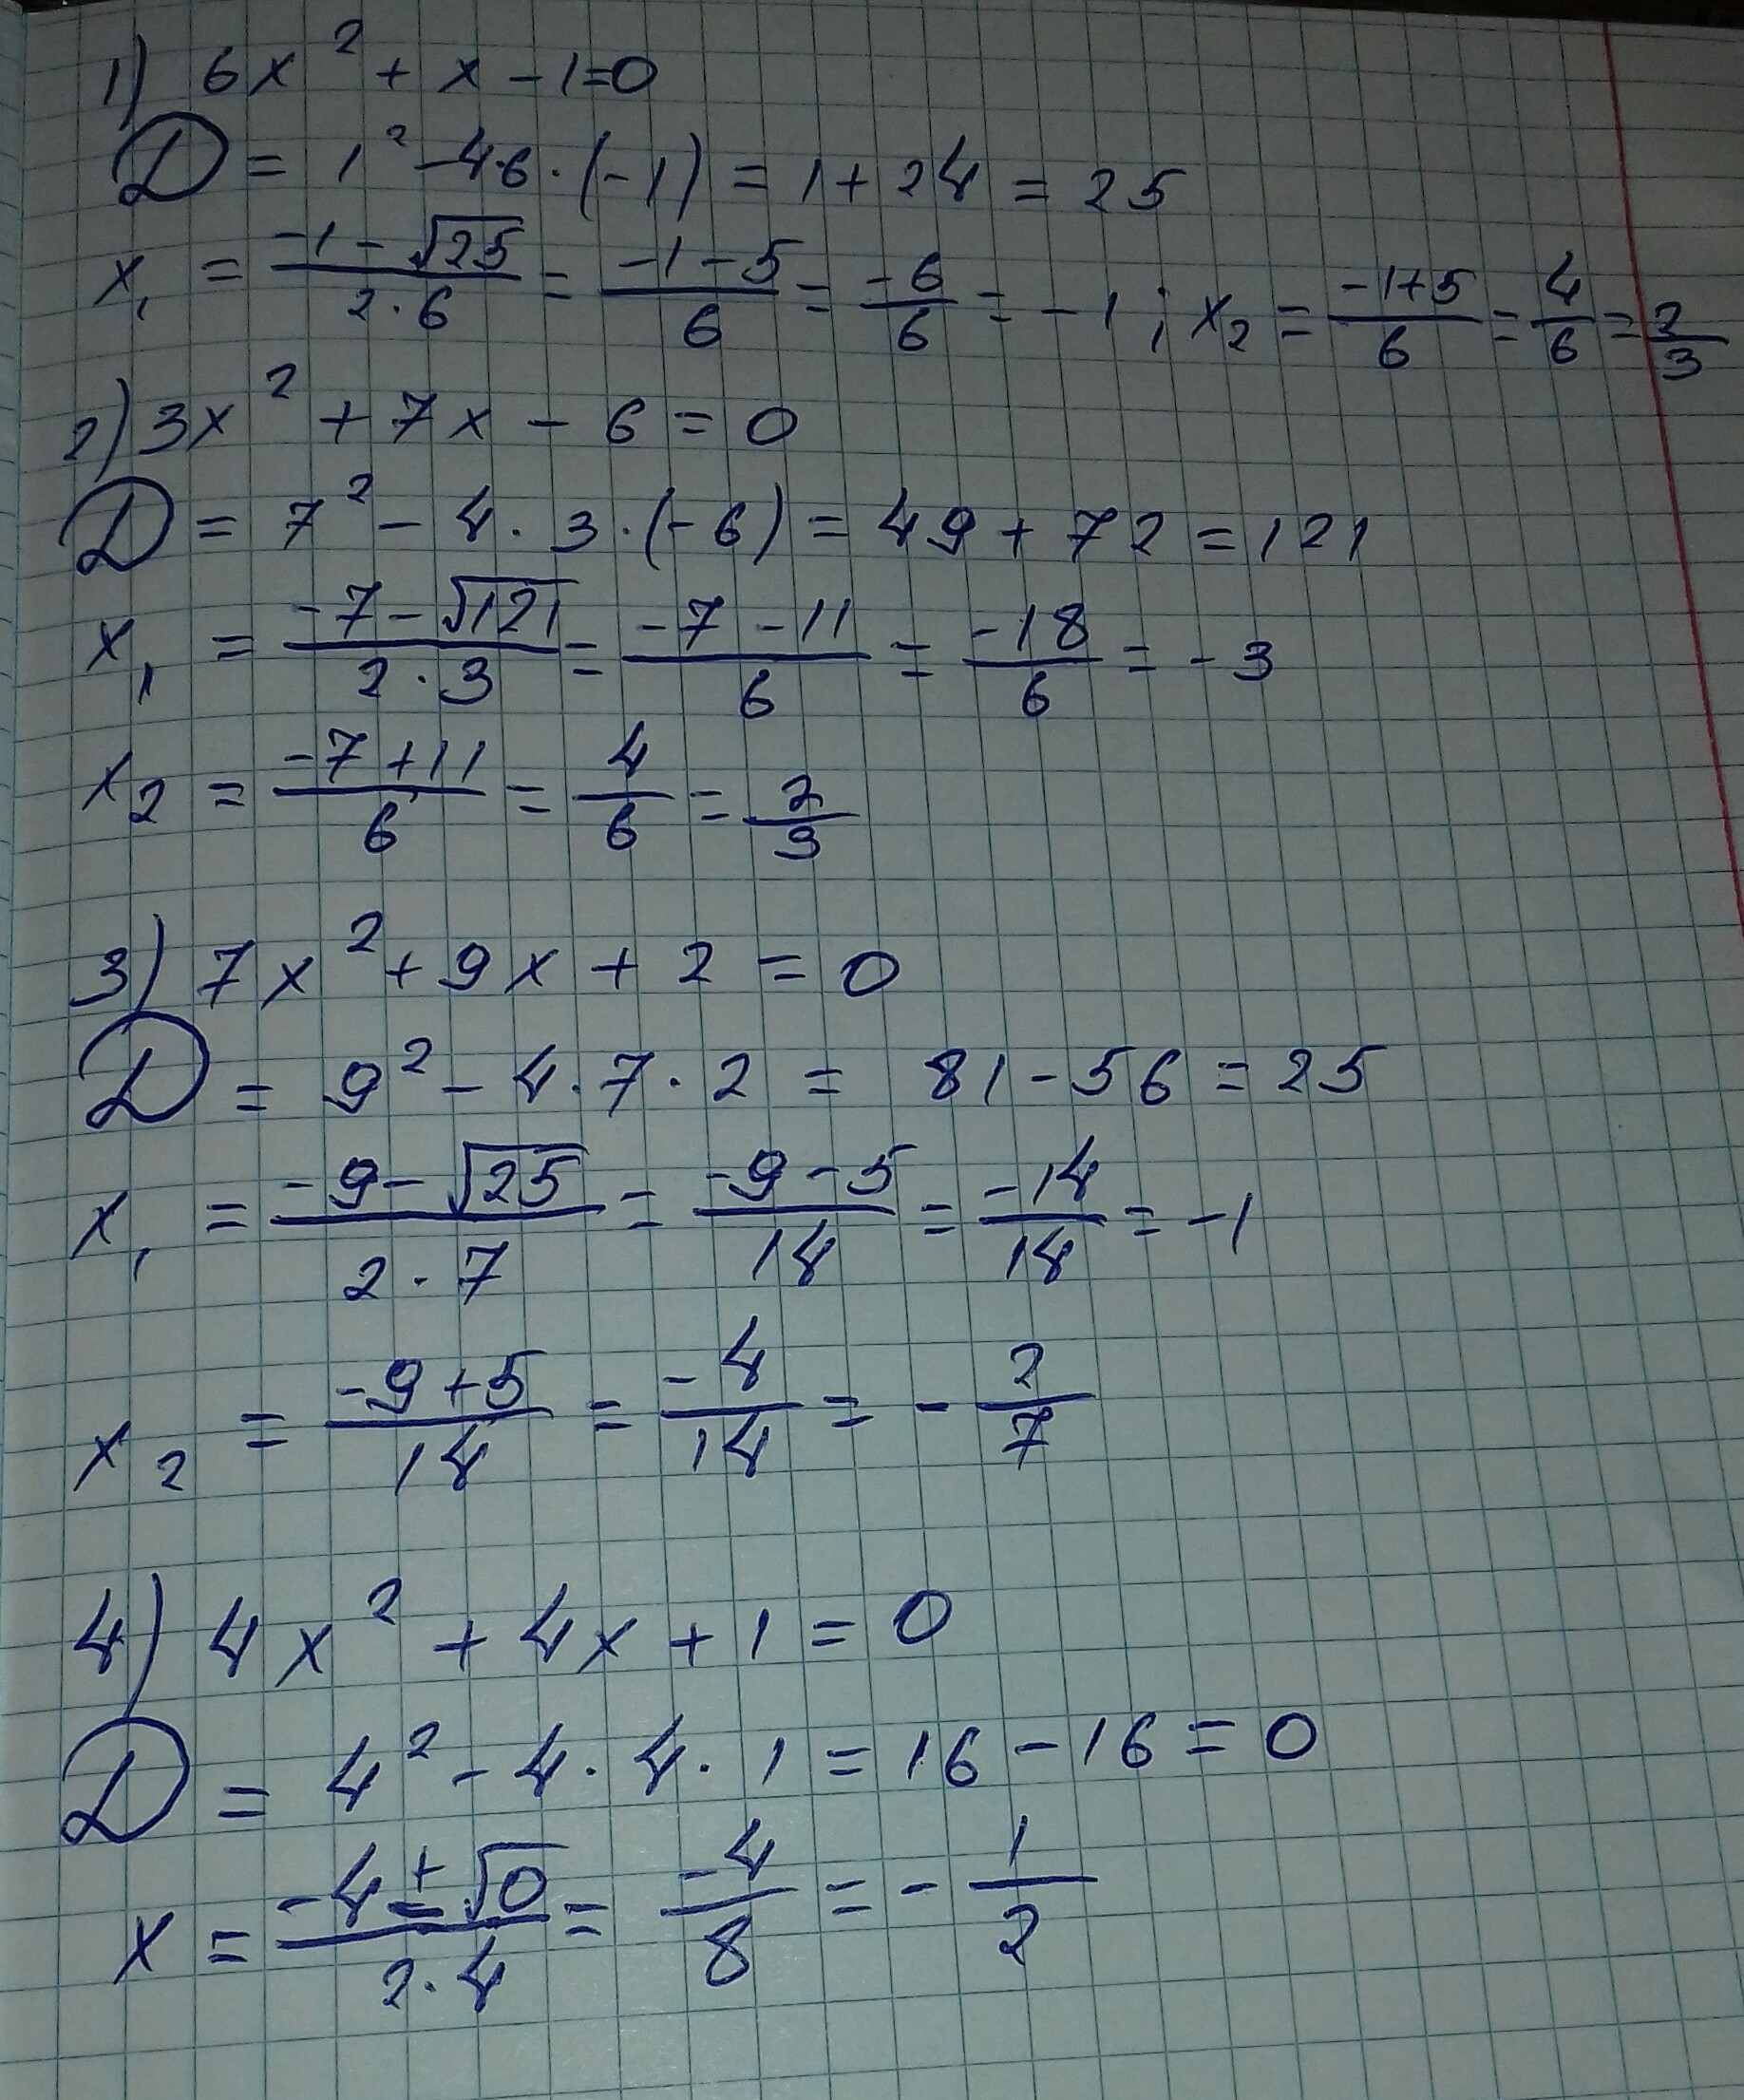 1) 6x² + x - 1 = 0
D = 1² - 4·6·(-1) = 1 + 24 = 25
x₁ = (-1 - √25)/(2·6) = (-1 - 5)/6 = -6/6 = -1; x₂ = (-1+5)/6 = 4/6 = 2/3
2) 3x² + 7x - 6 = 0
D = 7² - 4·3·(-6) = 49 + 72 = 121
x₁ = (-7 - √121)/(2·3) = (-7 - 11)/6 = -18/6 = -3
x₂ = (-7 + 11)/6 = 4/6 = 2/3
3) 7x² + 9x + 2 = 0
D = 9² - 4·7·2 = 81 - 56 = 25
x₁ = (-9 - √25)/(2·7) = (-9 - 5)/14 = -14/14 = -1
x₂ = (-9 + 5)/14 = -4/14 = -2/7
4) 4x² + 4x + 1 = 0
D = 4² - 4·4·1 = 16 - 16 = 0
x = (-4 ± √0)/(2·4) = -4/8 = -1/2